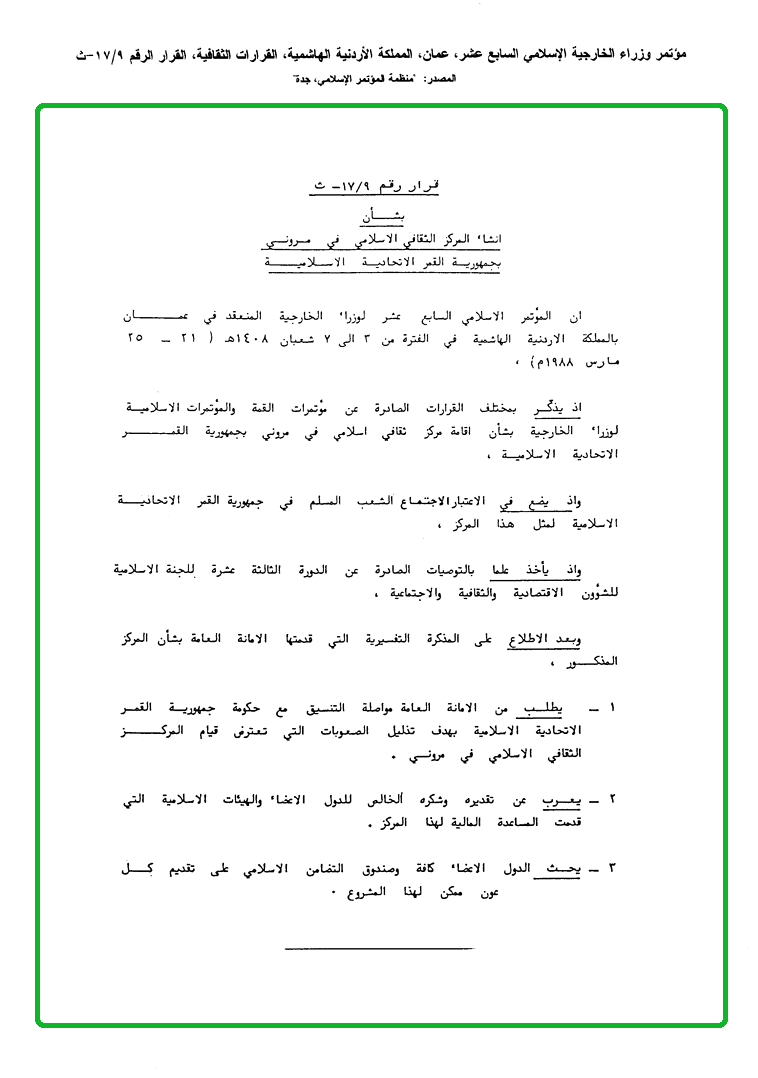 مؤتمر وزراء الخارجية الإسلامي السابع عشر، عمان، المملكة الأردنية الهاشمية، القرارات الثقافية، القرار الرقم ١٧/٩-ث
المصدر: "منظمة المؤتمر الإسلامي، جدة"
قرار رقم ١٧/٩ - ث
بشــأن
انشاء المركز الثقافي الاسلامي في مـرونـي
بجمهوريـة القمر الاتحاديـة الاسـلاميـــة
ان المؤتمر الاسلامي السابع عشر لوزراء الخارجية المنعقد في عمــــان
بالمملكة الاردنية الهاشمية في الفترة من ٣ الى ٧ شعبان ١٤٠٨هـ ( ٢١ ــ ٢٥
مارس ١٩٨٨م) ،
اذ يذكّر بمختلف القرارات الصادرة عن مؤتمرات القمة والمؤتمرات الاسلاميـة
لوزراء الخارجية بشأن اقامة مركز ثقافي اسلامي في مروني بجمهورية القمــــر
الاتحادية الاسلاميـة ،
واذ يضع في الاعتبار الاجتماع الشعب المسلم في جمهورية القمر الاتحاديــة
الاسلامية لمثل هذا المركز ،
واذ يأخذ علما بالتوصيات الصادرة عن الدورة الثالثة عشرة للجنة الاسلامية
للشؤون الاقتصادية والثقافية والاجتماعية ،
وبعد الاطلاع على المذكرة التفسيرية التي قدمتها الامانة العامة بشأن المركز
المذكــور ،
١ ــ يطلــب من الامانة العامة مواصلة التنسيق مع حكومة جمهوريــة القمـر
الاتحادية الاسلامية بهدف تذليل الصعوبات التي تعترض قيام المركـــز
الثقافي الاسلامي في مرونـي .
٢ ــ يعــرب عن تقديره وشكره الخالص للدول الاعضاء والهيئات الاسلامية التي
قدمت المساعدة المالية لهذا المركز .
٣ ــ يحــث الدول الاعضاء كافة وصندوق التضامن الاسلامي على تقديم كــل
عون ممكن لهذا المشروع .